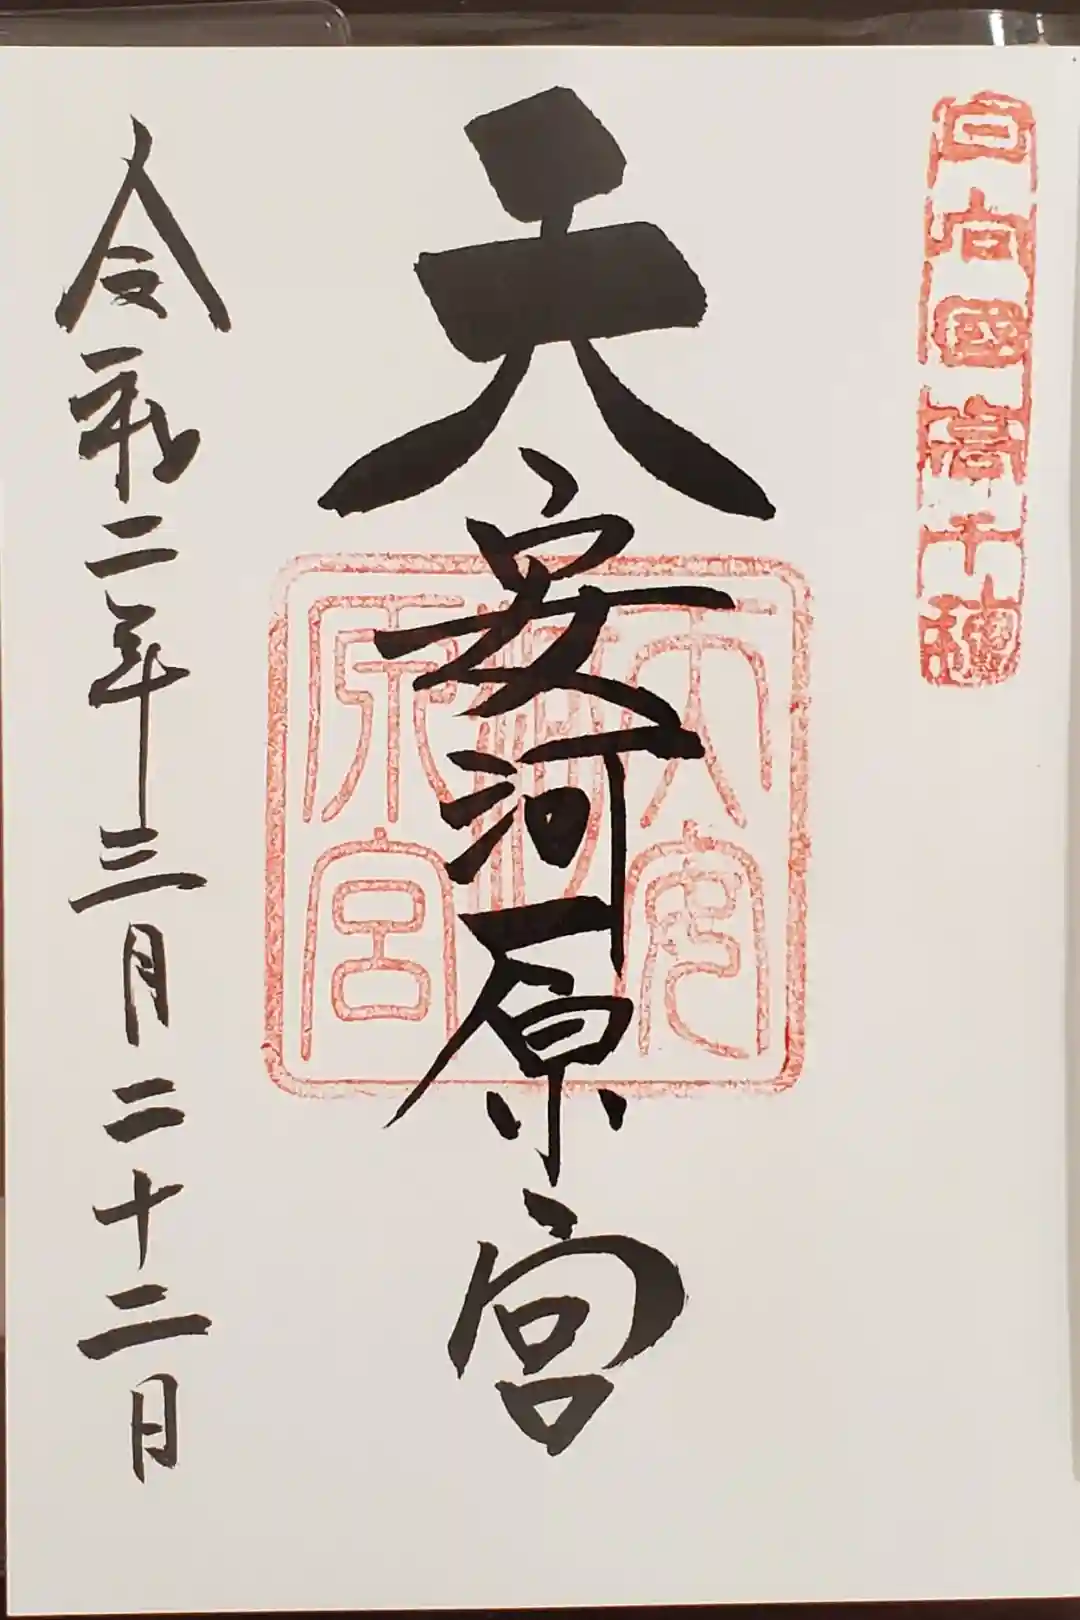 日向國高千穗
天安河原宮
天安河原宮
令和二年三月二十二日